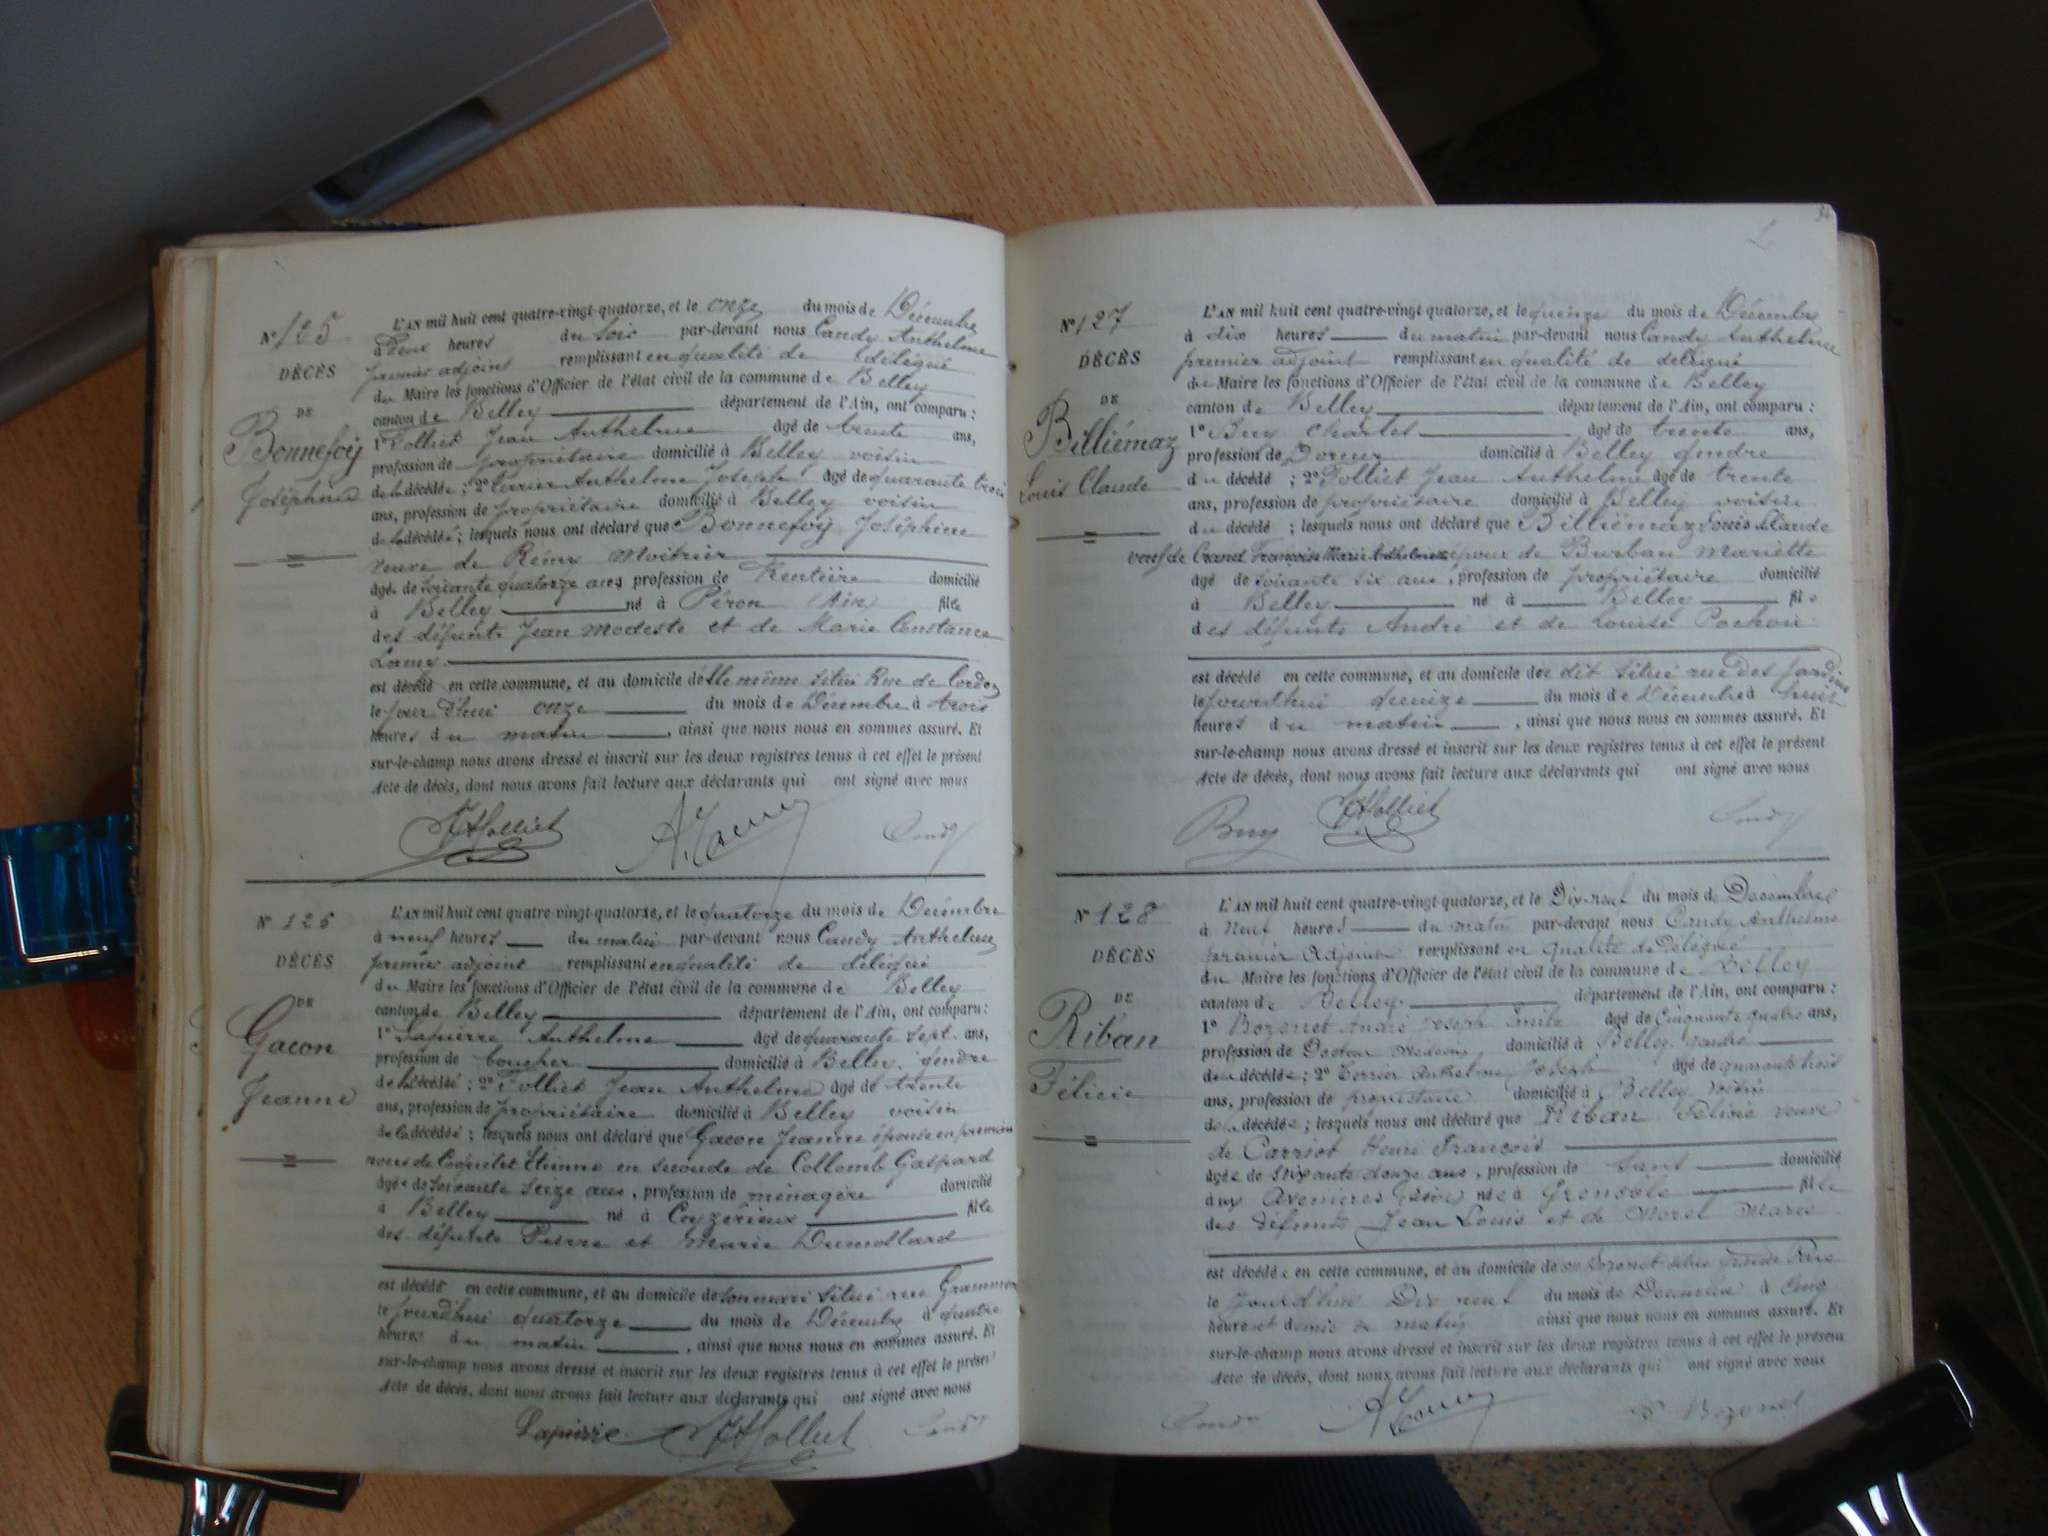 N° 125
DÉCÈS
DE
Bonnefoy
Joséphine
L'AN mil huit cent quatre-vingt-quatorze, et le onze du mois de Décembre
à Deux heures du soir par-devant nous Candy Anthelme
premier adjoint remplissant en qualité de délégué
du Maire les fonctions d'Officier de l'état civil de la commune de Belley
canton de Belley département de l'Ain, ont comparu :
1° Folliet Jean Anthelme âgé de trente ans,
profession de propriétaire domicilié à Belley voisin
de la décédée ; 2° Terrier Anthelme Joseph âgé de quarante trois
ans, profession de propriétaire domicilié à Belley voisin
de la décédée ; lesquels nous ont déclaré que Bonnefoy Joséphine
veuve de Rémy Moitrier
âgée de soixante quatorze ans, profession de Rentière domicilié
à Belley né à Péron (Ain) fille
des défunts Jean Modeste et de Marie Constance
Lamy
est décédé en cette commune, et au domicile d'elle même situé Rue de
le jour d'hui onze du mois de Décembre à trois
heures du matin, ainsi que nous nous en sommes assuré. Et
sur-le-champ nous avons dressé et inscrit sur les deux registres tenus à cet effet le présent
Acte de décès, dont nous avons fait lecture aux déclarants qui ont signé avec nous
JAFolliet Candy
N° 126
DÉCÈS
DE
Gacon
Jeanne
L'AN mil huit cent quatre-vingt-quatorze, et le quatorze du mois de Décembre
à neuf heures du matin par-devant nous Candy Anthelme
premier adjoint remplissant en qualité de délégué
du Maire les fonctions d'Officier de l'état civil de la commune de Belley
canton de Belley département de l'Ain, ont comparu :
1° Lapierre Anthelme âgé de quarante sept ans,
profession de boucher domicilié à Belley gendre
de la décédée ; 2° Folliet Jean Anthelme âgé de trente
ans, profession de propriétaire domicilié à Belley voisin
de la décédée ; lesquels nous ont déclaré que Gacon Jeanne épouse en premières
noces de Coquelet Etienne en seconde de Collomb Gaspard
âgée de soixante seize ans, profession de ménagère domicilié
à Belley né à Conzérieux fille
des défunts Pierre et Marie Dumollard
est décédé en cette commune, et au domicile de son mari situé rue Grammont
le jourd'hui quatorze du mois de Décembre à quatre
heures du matin, ainsi que nous nous en sommes assuré. Et
sur-le-champ nous avons dressé et inscrit sur les deux registres tenus à cet effet le présent
Acte de décès, dont nous avons fait lecture aux déclarants qui ont signé avec nous
Lapierre JAFolliet Candy
N° 127
DÉCÈS
DE
Billiémaz
Louis Claude
L'AN mil huit cent quatre-vingt-quatorze, et le quinze du mois de Décembre
à dix heures du matin par-devant nous Candy Anthelme
premier adjoint remplissant en qualité de délégué
du Maire les fonctions d'Officier de l'état civil de la commune de Belley
canton de Belley département de l'Ain, ont comparu :
1° Buy Charles âgé de trente ans,
profession de Doreur domicilié à Belley gendre
du décédé ; 2° Folliet Jean Anthelme âgé de trente
ans, profession de propriétaire domicilié à Belley voisin
du décédé ; lesquels nous ont déclaré que Billiémaz Louis Claude
veuf de Françoise Marie Anthelmette époux de Burban Mariette
âgé de soixante six ans, profession de propriétaire domicilié
à Belley né à Belley fils
des défunts André et de Louise Pochon
est décédé en cette commune, et au domicile de dit situé rue Des Jardins
le jourd'hui quinze du mois de Décembre à huit
heures du matin, ainsi que nous nous en sommes assuré. Et
sur-le-champ nous avons dressé et inscrit sur les deux registres tenus à cet effet le présent
Acte de décès, dont nous avons fait lecture aux déclarants qui ont signé avec nous
Buy JAFolliet Candy
N° 128
DÉCÈS
DE
Riban
Félicie
L'AN mil huit cent quatre-vingt-quatorze, et le Dix-neuf du mois de Décembre
à Neuf heures du matin par-devant nous Candy Anthelme
premier Adjoint remplissant en qualité de Délégué
du Maire les fonctions d'Officier de l'état civil de la commune de Belley
canton de Belley département de l'Ain, ont comparu :
1° Bozonet André Joseph Emile âgé de Cinquante quatre ans,
profession de Docteur Médecin domicilié à Belley gendre
de la décédée ; 2° Terrier Anthelme Joseph âgé de quarante trois
ans, profession de propriétaire domicilié à Belley voisin
de la décédée ; lesquels nous ont déclaré que Riban Félicie veuve
de Carriot Henri François
âgée de soixante douze ans, profession de sans domicilié
aux Avenieres (Isère) née à Grenoble fille
des défunts Jean Louis et de Morel Marie
est décédée en cette commune, et au domicile de Bozonet Grande Rue
le jourd'hui Dix neuf du mois de Décembre à Cinq
heures et demie du matin ainsi que nous nous en sommes assuré. Et
sur-le-champ nous avons dressé et inscrit sur les deux registres tenus à cet effet le présent
Acte de décès, dont nous avons fait lecture aux déclarants qui ont signé avec nous
Candy Bozonet